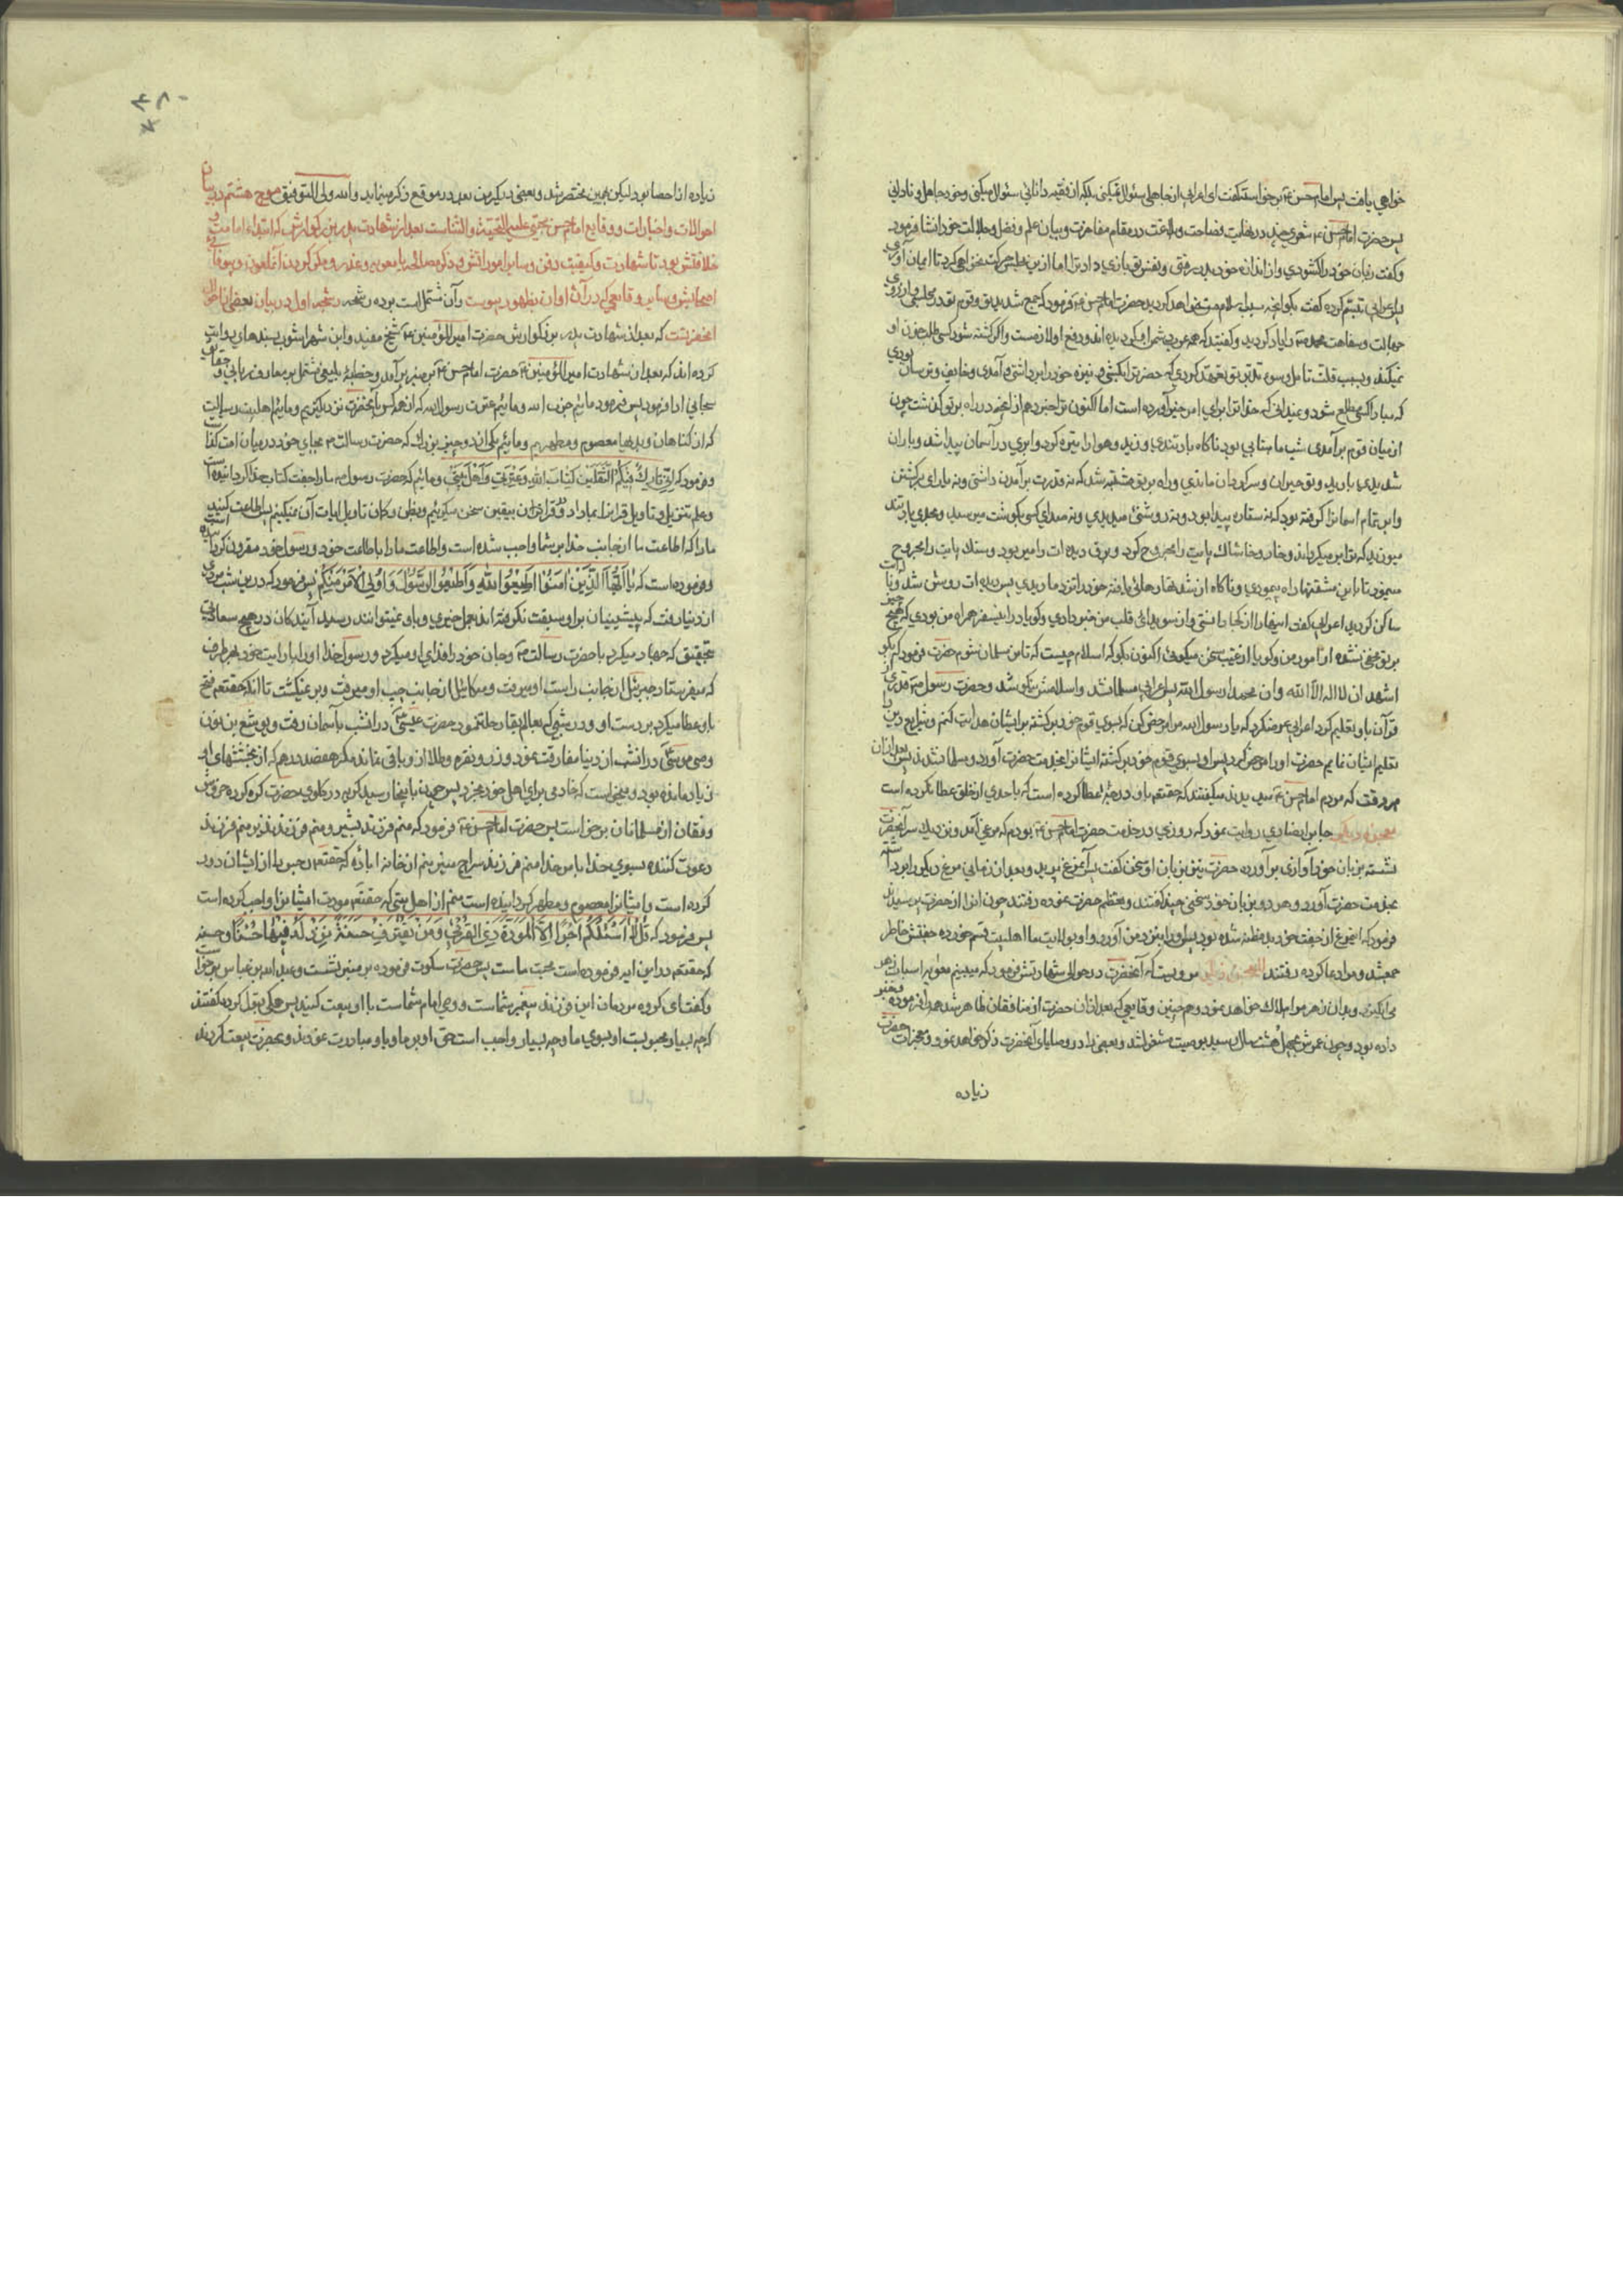 خواهي يافت پس امام حسن ع برخواست و گفت اي اعرابي از جاهلي سئوال نميكني بلكه از فقيه دانائي سئوال ميكني و خود جاهل و ناداني
پس حضرت امام حسن ع شعري چند در نهايت فصاحت و بلاغت در مقام مفاخرت و بيان علم و فضل و جلالت خود انشا فرمود
و گفت زبان خود را گشودي و از اندازه خود بدر رفتي و نفس تو بازي داد ترا اما ازين مجلس حركت نخواهي كرد تا ايمان آوري
پس اعرابي تبسم كرده گفت بگو آنچه سبب اسلام من خواهد گرديد حضرت امام حسن ع فرمود كه جمع شديد تو و قوم تو در مجلسي و از روي
جهالت و سفاهت محمد ص را ياد كرديد و گفتيد كه همه عرب دشمن او گرديده اند و رفع او لازمست و اگر كشته شود كسي طلب خون او
نميكند و بسبب قلت تأمل و سوء تدبير تو تعهد كردي كه حضرت را بكشي و نيزه خود را برداشتي و آمدي و خايف و ترسان بودي
كه مبادا كسي مطلع شود و نميداني كه خدا ترا براي امر خيري آورده است اما اكنون ترا خبر دهم از آنچه در راه بر تو گذشت چون
از ميان قوم برآمدي شب ماهتابي بود ناگاه باد تندي وزيد و هوا را تيره كرد و ابري در آسمان پيدا شد و باران
شديدي باريد و تو حيران و سرگردان ماندي و راه بر تو مشتبه شد كه نه قدرت برآمدن داشتي و نه ياراي برگشتن
و ابر تمام آسمانرا گرفته بود كه نه ستاره پيدا بود و نه روشني ميديدي و نه صداي كسي بگوشت ميرسيد و بحدي باد تند
ميوزيد كه ترا برميگرداند و خار و خاشاك پايت را مجروح كرد و برق ديده ات را ميربود و سنگ پايت را مجروح
مينمود تا با اين مشقتها راه پيمودي و ناگاه از شدتها رهائي يافته خود را نزد ما ديدي پس ديده ات روشن شد و ناله ات
ساكن گرديد اعرابي گفت اينها را از كجا دانستي و از سويداي قلب من خبر دادي و گويا در اين سفر همراه من بودي كه هيچ چيز
بر تو مخفي نشده از امور من و گويا از غيب سخن ميگوئي اكنون بگو كه اسلام چيست كه تا من مسلمان شوم حضرت فرمود كه بگو
اشهد ان لا اله الا الله و ان محمدا رسول الله پس اعرابي مسلمان شد و اسلامش نيكو شد و حضرت رسول ص قدري
قرآن باو تعليم كرد اعرابي عرض كرد كه يا رسول الله مرا مرخص كن كه بسوي قوم خود برگشته بر ايشان هدايت كنم و شرايع دين را
تعليم ايشان نمايم حضرت او را مرخص كرد پس او بسوي قوم خود برگشته ايشانرا بخدمت حضرت آورد و مسلمان شدند پس بعد از ان
هر وقت كه مردم امام حسن ع را ميديدند ميگفتند كه حقتعالي باو درجه عطا كرده است كه باحدي از خلق عطا نكرده است
معجزه ديگر جابر انصاري روايت نمود كه روزي در خدمت حضرت امام حسن ع بودم كه مرغي آمد و نزديك سر آنحضرت
نشسته بزبان خود آوازي برآورده حضرت نيز بزبان او سخن گفت پس آنمرغ پريد و بعد از زماني مرغ ديگر را برداشته
بخدمت حضرت آورد و هر دو بزبان خود سخني چند گفتند و تعظيم حضرت نموده رفتند چون از آن حضرت پرسيدند
فرمود كه اين مرغ از جفت خود بدمظنه شده بود پس او را نزد من آورد و او بولايت ما اهلبيت قسم خورده جفتش خاطر
جمع شد و مرا دعا كرده رفتند معجزه ديگر مرويست كه آنحضرت در حوالي شهادتش فرمود كه ميبينم معويه اسباب زهر
مي انگيزد و بدان زهر مرا هلاك خواهد نمود و همچنين وقايعي كه بعد از آن حضرت از منافقان ظاهر شد همه را فرموده و خبر
داده بود و چون عمرش بچهل و هشت سال رسيد بوصيت مشغول شد و بعضي را در وصاياي آنحضرت ذكر خواهد نمود و معجزات حضرت
زياده
٤٨٠
زياده از احصا بود ليكن بهمين مختصر شد و بعضي ديگر من بعد در موقع ذكر مينمايد والله ولي التوفيق موج هشتم در بيان
احوالات و اخبارات و وقايع امام حسن مجتبي عليه التحية والثناست بعد از شهادت پدر بزرگوارش كه ابتداء امامت و
خلافتش بود تا شهادت و كيفيت دفن و ساير امور اتش و ذكر مصالحه با معويه و غدر و مكر كردن آنملعون و بيوفائي
اصحابش و ساير وقايعي كه در آن اوان بظهور پيوست و آن مشتملست بر ده رشحه رشحه اول در بيان بعضي از احوال
آنحضرتست كه بعد از شهادت پدر بزرگوارش حضرت امير المؤمنين ع شيخ مفيد و ابن شهر اشوب بسندهاي روايت
كرده اند كه بعد از شهادت امير المؤمنين ع حضرت امام حسن ع بر منبر برآمد و خطبه بليغي مشتمل بر معارف رباني و حقايق
سبحاني ادا فرمود پس فرمود مائيم حزب الله و مائيم عترت رسول الله كه از همه كس بآنحضرت نزديكتريم و مائيم اهلبيت رسالت
كه از گناهان و بديها معصوم و مطهريم و مائيم يكي از دو چيز بزرگ كه حضرت رسالت ص بجاي خود در ميان امت گذاشت
و فرمود كه اني تارك فيكم الثقلين كتاب الله و عترتي و اهل بيتي و مائيم كه حضرت رسول ص ما را جفت كتاب خدا گردانيده است
و علم تنزيل و تاويل قرآنرا بما داد و در قرآن بيقين سخن ميگوئيم و بظن و گمان تاويل ايات آن نميكنيم پس اطاعت كنيد
ما را كه اطاعت ما از جانب خدا بر شما واجب شده است و اطاعت ما را باطاعت خود و رسول خود مقرون گردانيده است
و فرموده است كه يا ايها الذين امنوا اطيعوا الله و اطيعوا الرسول و اولي الامر منكم پس فرمود كه درين شب مردي
از دنيا رفت كه پيشينيان بر او سبقت نگرفته اند بعمل خيري و باو نميتوانند رسيد آيندگان در هيچ سعادتي
بتحقيق كه جهاد ميكرد با حضرت رسالت ص و جان خود را فداي او ميكرد و رسول خدا او را با رايت خود بهر طرف
كه ميفرستاد جبرئيل از جانب راست او ميرفت و ميكائيل از جانب چپ او ميرفت و برنميگشت تا آنكه حقتعالي فتح
باو عطا ميكرد بر دست او و در شبي كه بعالم بقا رحلت نمود حضرت عيسي در آنشب بآسمان رفت و يوشع بن نون
وصي موسي در آنشب از دنيا مفارقت نمود و زر و نقره و طلا از و باقي نماند مگر هفصد درهم كه از بخششهاي او
زياد مانده بود و ميخواست كه خادمي براي اهل خود بخرد پس چون باينجا رسيد گريه در گلوي حضرت گره كرده خروش
و فغان از مسلمانان برخواست پس حضرت امام حسن ع فرمود كه منم فرزند بشير و منم فرزند نذير منم فرزند
دعوت كننده بسوي خدا بامر خدا منم فرزند سراج منير منم از خانه آباده كه حقتعالي رجس را از ايشان دور
كرده است و ايشانرا معصوم و مطهر گردانيده است منم از اهل بيتي كه حقتعالي مودت ايشانرا واجب كرده است
پس فرمود كه قل لا اسئلكم عليه اجرا الا المودة في القربي و من يقترف حسنة نزد له فيها حسنا و حسنه
كه حقتعالي در اين آيه فرموده است محبت ماست پس حضرت سكوت فرموده بر منبر نشست و عبد الله بن عباس برخواست
و گفت اي گروه مردمان اين فرزند پيغمبر شماست و وصي امام شماست با او بيعت كنيد پس همگي قبول كرده گفتند
كه چه بسيار محبوبست او بسوي ما و چه بسيار واجب است حق او بر ما و باو مبادرت نمودند و بحضرت بيعت كردند